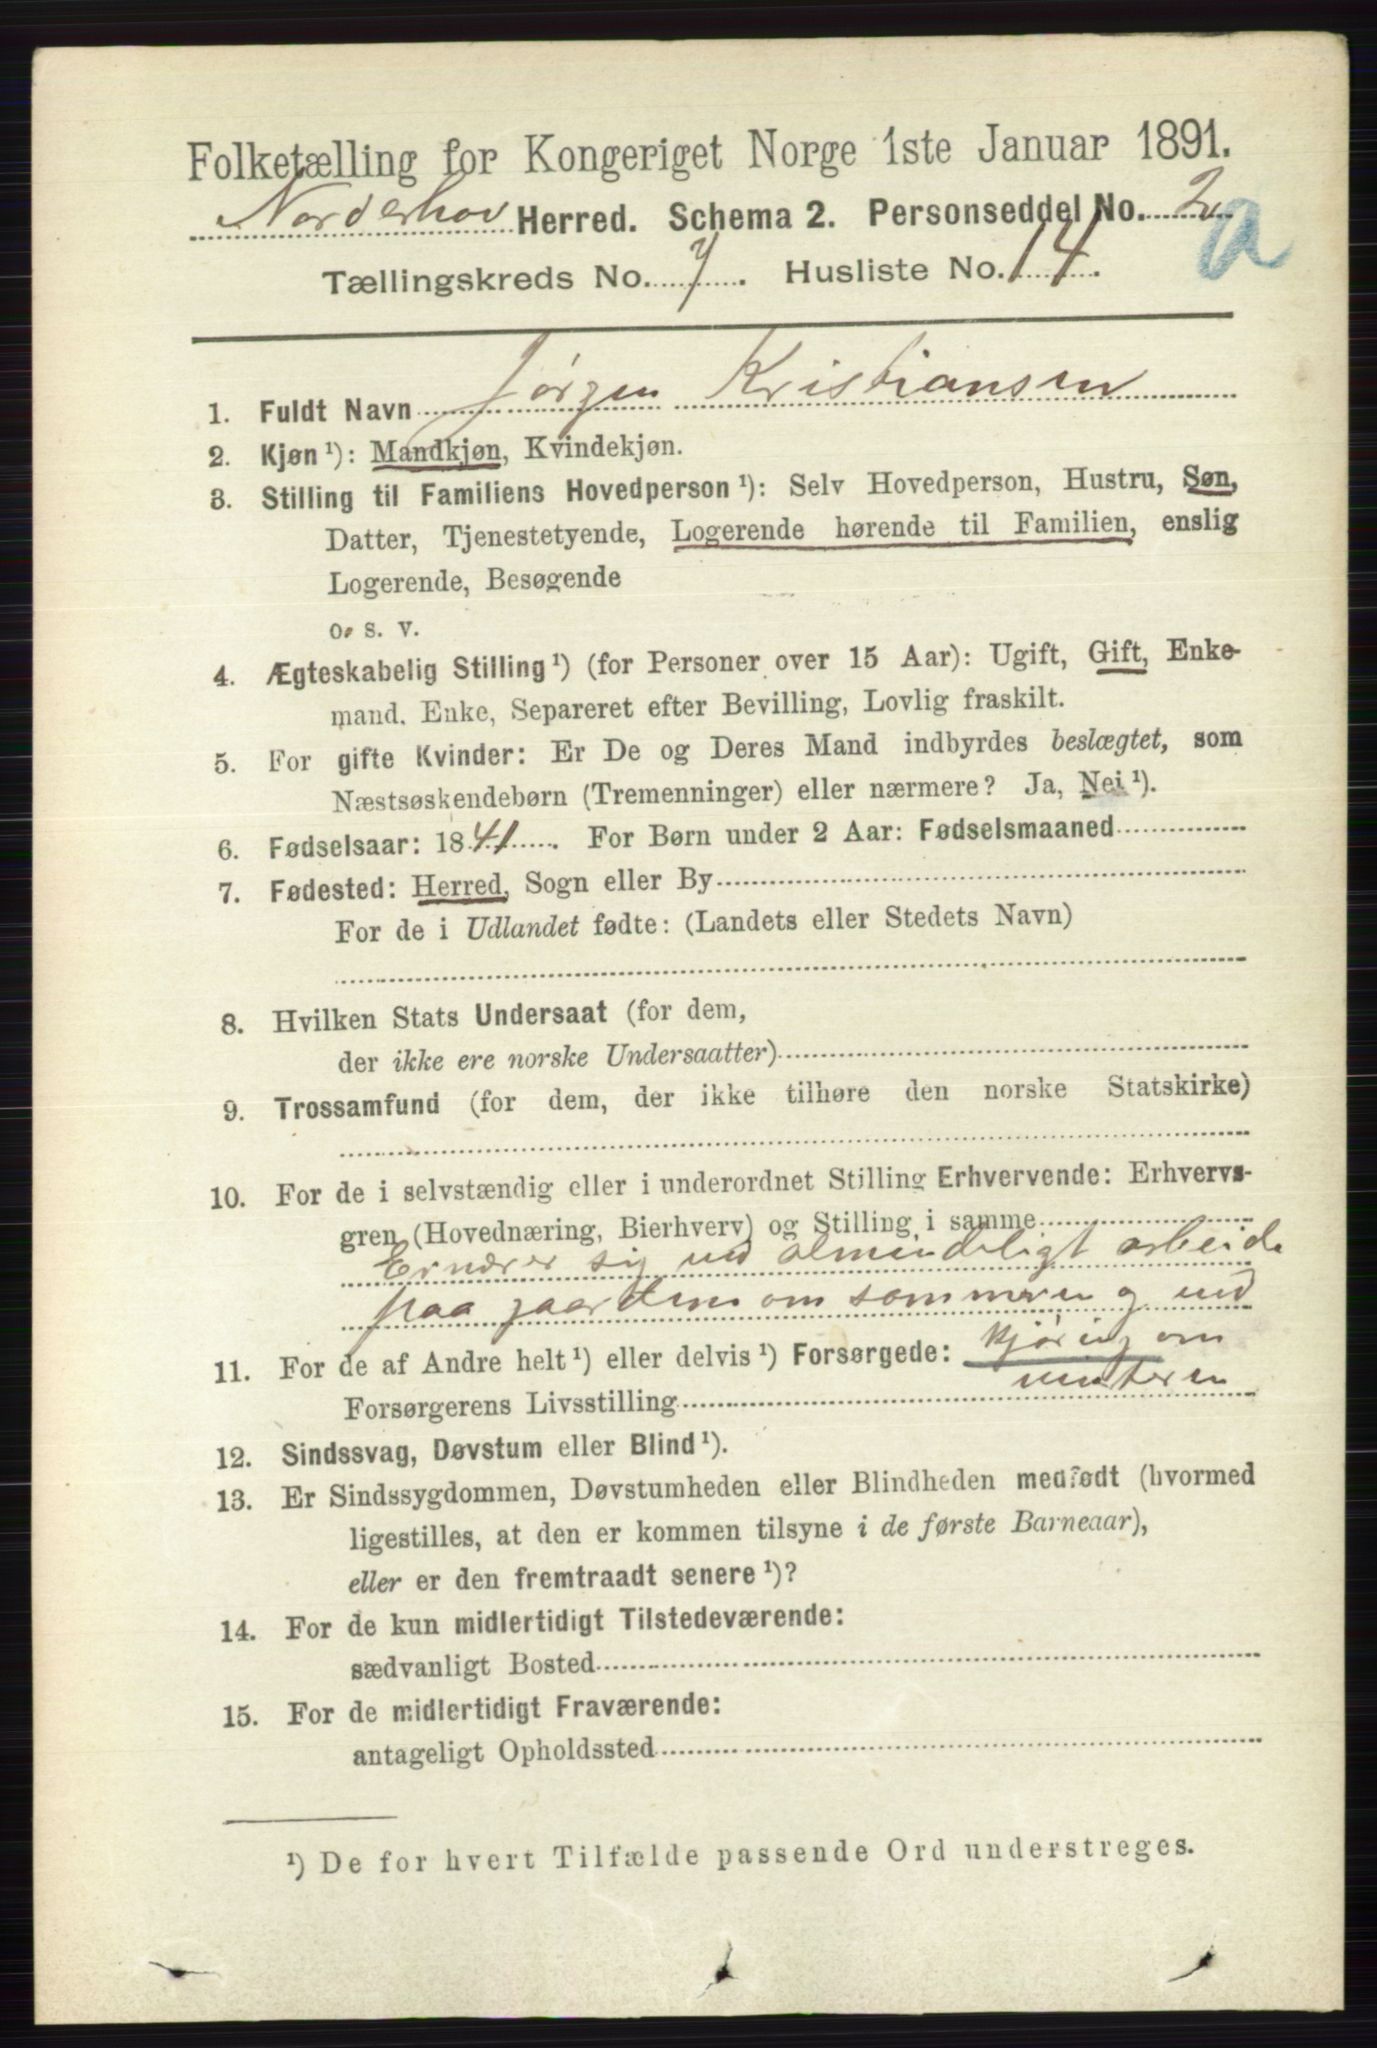 Folketælling for Kongeriget Norge 1ste Januar 1891.
Norderhov Herred. Schema 2. Personseddel No. 2 a
Tællingskreds No. 7. Husliste No. 14.
1. Fuldt Navn Jørgen Kristiansen
2. Kjøn¹): Mandkjøn, Kvindekjøn.
3. Stilling til Familiens Hovedperson¹): Selv Hovedperson, Hustru, Søn,
Datter, Tjenestetyende, Logerende hørende til Familien, enslig
Logerende, Besøgende
o. s. v.
4. Ægteskabelig Stilling¹) (for Personer over 15 Aar): Ugift, Gift, Enke-
mand, Enke, Separeret efter Bevilling, Lovlig fraskilt.
5. For gifte Kvinder: Er De og Deres Mand indbyrdes beslægtet, som
Næstsøskendebørn (Tremenninger) eller nærmere? Ja, Nei¹).
6. Fødselsaar: 1841. For Børn under 2 Aar: Fødselsmaaned
7. Fødested: Herred, Sogn eller By
For de i Udlandet fødte: (Landets eller Stedets Navn)
8. Hvilken Stats Undersaat (for dem,
der ikke ere norske Undersaatter)
9. Trossamfund (for dem, der ikke tilhøre den norske Statskirke)
10. For de i selvstændig eller i underordnet Stilling Erhvervende: Erhvervs-
gren (Hovednæring, Bierhverv) og Stilling i samme
Ernærer sig ved almindeligt arbeide
paa gaarden om sommeren og ved
kjøring om
11. For de af Andre helt¹) eller delvis¹) Forsørgede:
vinteren
Forsørgerens Livsstilling
12. Sindssvag, Døvstum eller Blind¹).
13. Er Sindssygdommen, Døvstumheden eller Blindheden medfødt (hvormed
ligestilles, at den er kommen tilsyne i de første Barneaar),
eller er den fremtraadt senere¹)?
14. For de kun midlertidigt Tilstedeværende:
sædvanligt Bosted
15. For de midlertidigt Fraværende:
antageligt Opholdssted
¹) De for hvert Tilfælde passende Ord understreges.